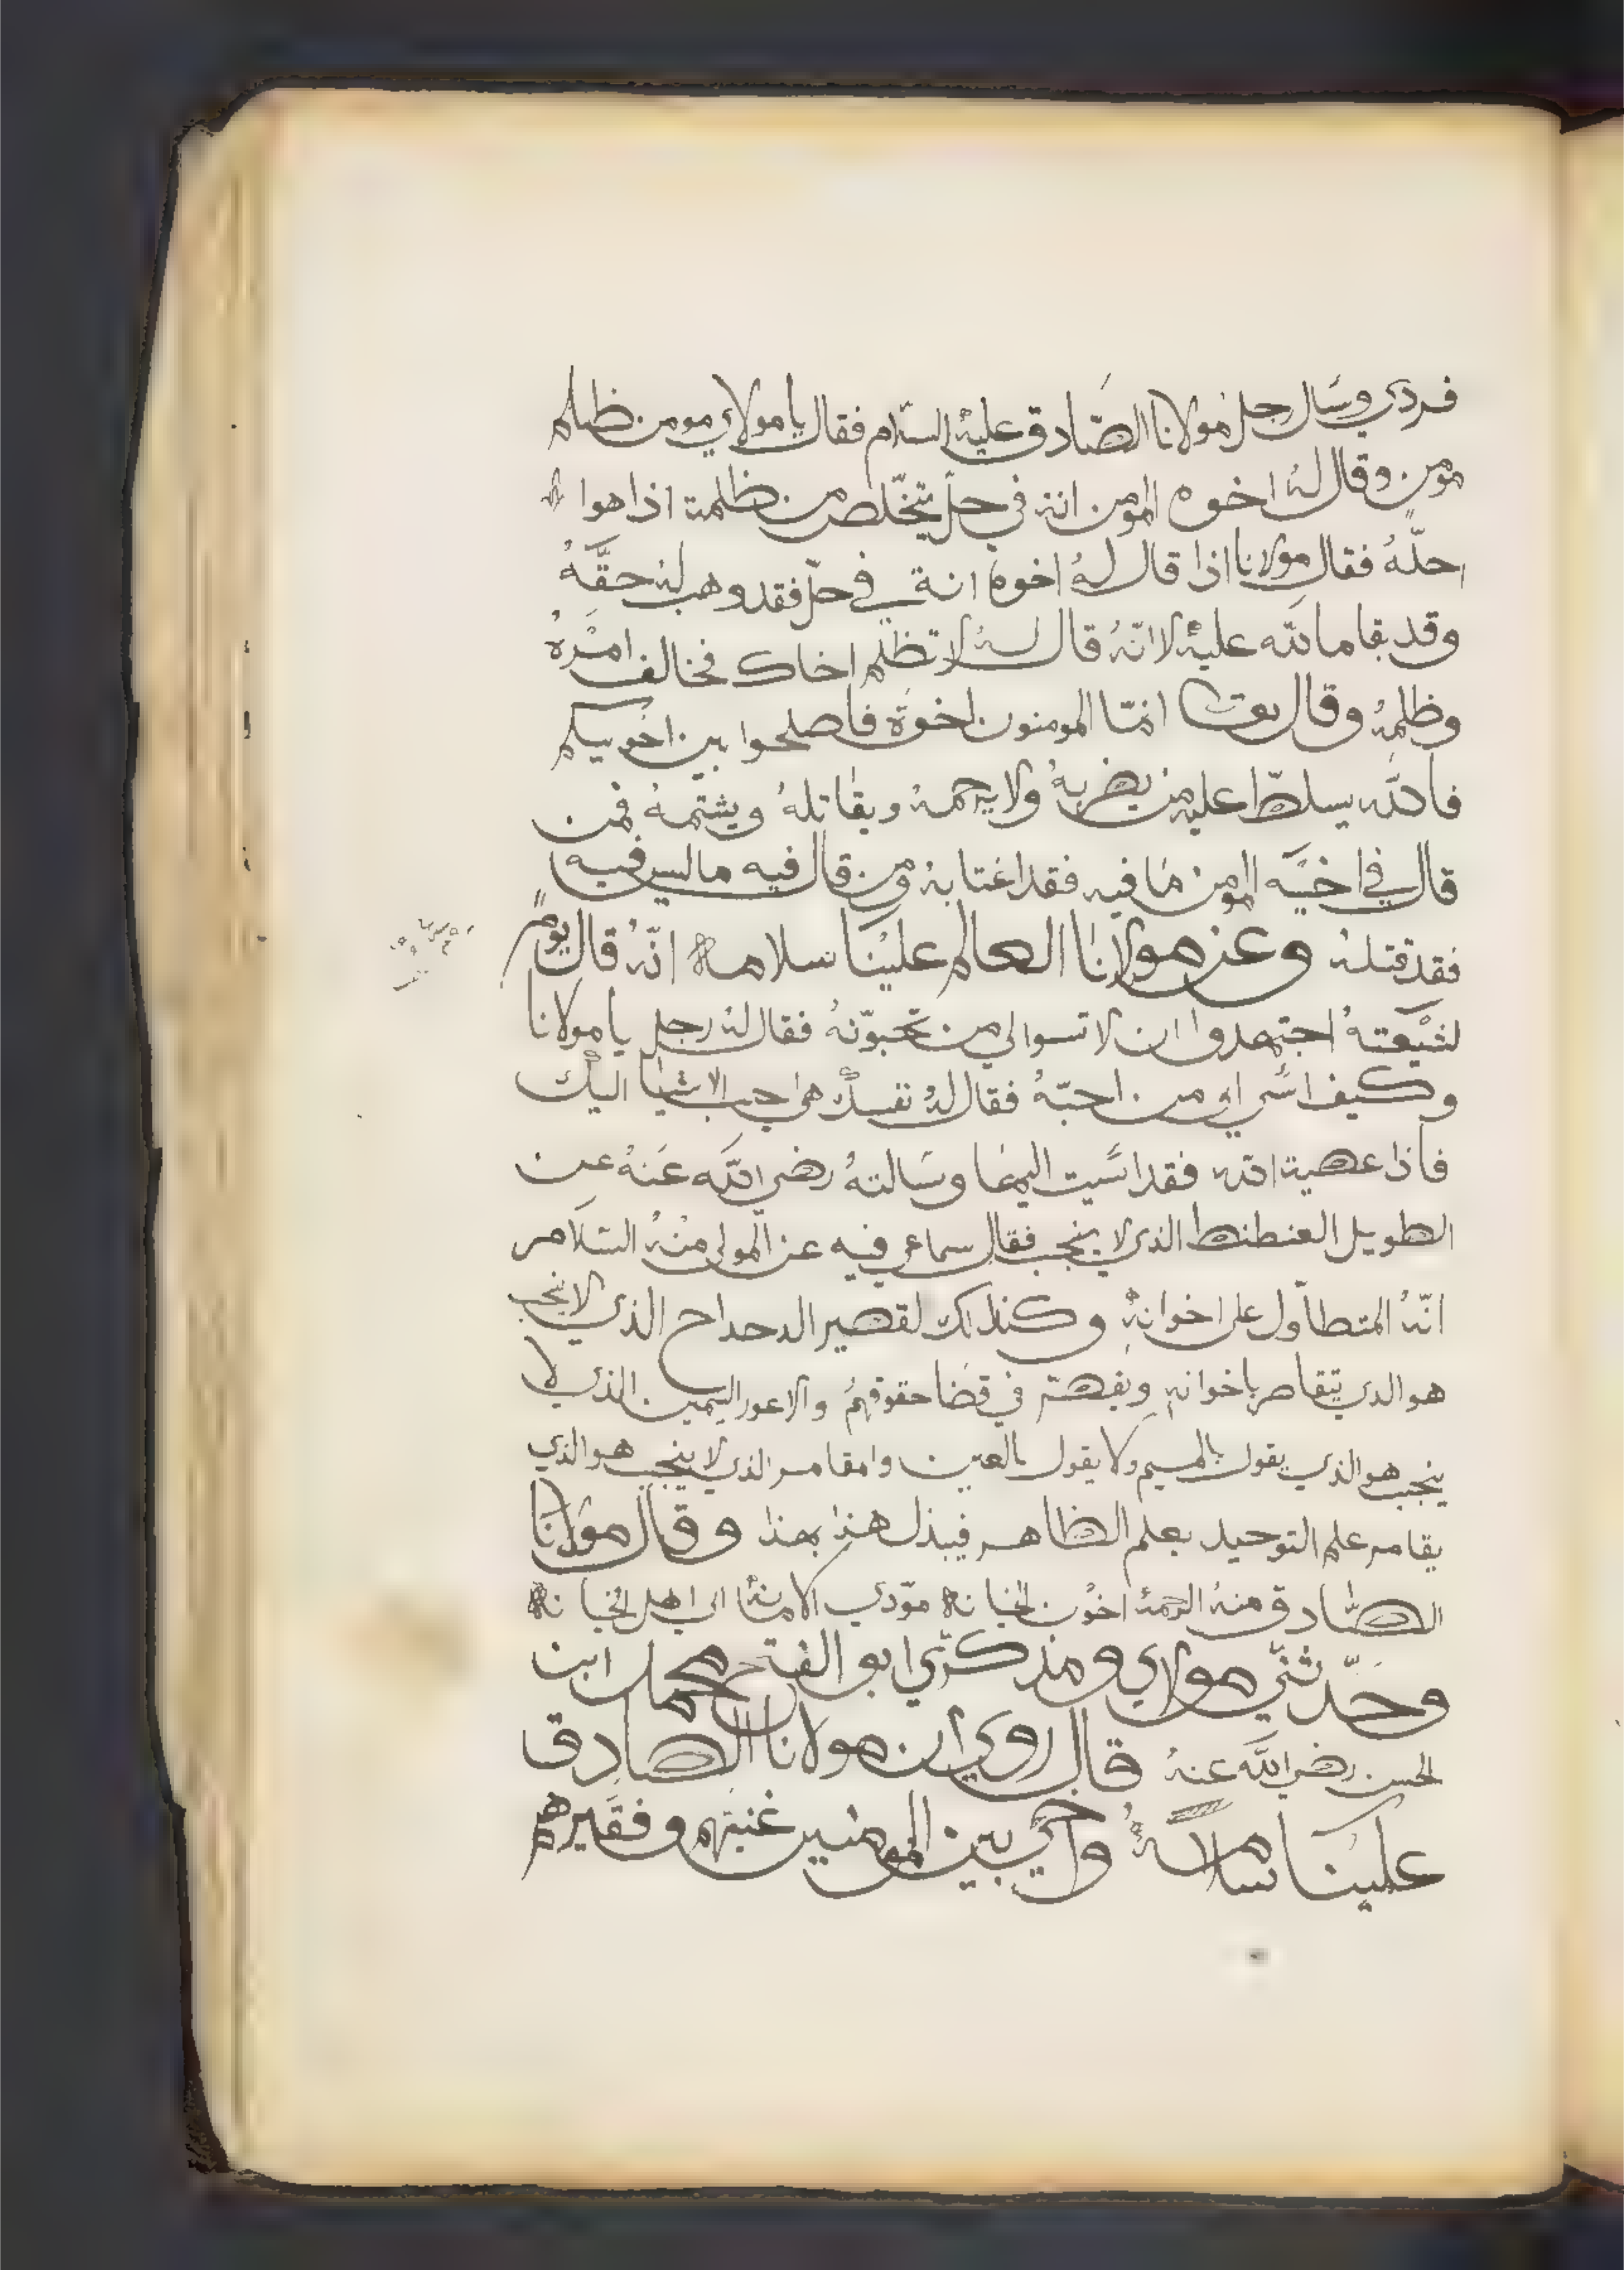 فردي وسال رجل مولانا الصّادق عليه السّلام فقال يا مولاي مومن ظلم
مومن وقال له اخوه المومن انه في حلّ يتخّلص من ظلمته اذا هوا
احلّهُ فقال مولانا اذا قال لهُ اخوه انة في حلّ فقد وهب له حقَّهُ
وقد بقا مالله عليهِ لانّهُ قال لهُ لا تظلم اخاك فخالف امْرهُ
وظلمهُ وقال انمّا المومنون اخوة فاصلحوا بين اخويكم
فالله يسلطّ عليه من يضربهُ ولا يرحمهُ ويقاتلهُ ويشتمهُ فمن
قال في اخيَه المومن ما فيه فقد اغتابهُ ومن قال فيه ما ليس فيه
فقد قتلهُ وعن مولانا العالم علينا سلامه انّهُ قال يومٍ
لشيْعتهُ اجتهدوا ان لا تسوا الي من تحبوّنهُ فقال لهُ رجل يا مولانا
وكيف اسَي الي من احبّهُ فقال لهُ نفسك هي احب الاشيا اليك
فاذا عصيت الله فقد اسَيت اليها وسَالتهُ رضي اللَه عَنهُ عن
الطويل العنطنط الذي لا ينجب فقال سماعي فيه عن المولى منْهُ السَلامر
انّهُ المتطاول على اخوانهِ وكذلك لقصير الدحداح الذي لا ينجب
هو الدي يتقاصر باخوانهِ ويقصّر في قضا حقوقهمُ والاعور اليمين الذي لا
ينجب هو الذي يقول بالميم ولا يقول بالعين وامقامر الذي لا ينجب هو الذي
يقامر علم التوحيد بعلم الظاهر فيبذل هذا بهذا وقال مَولانا
الصّادق منهُ الرحمهُ اخوْن الخيانه موّدي الامانهُ الى اهل الخيانه
وحَدّثنيّ مولاي ومذكرّي ابو الفتح محمد ابن
الحسن رضي اللَه عنهُ قال روي ان مولانا الصادق
علينا سلامهُ واخي بين المومنين غنيهم وفقيرهم